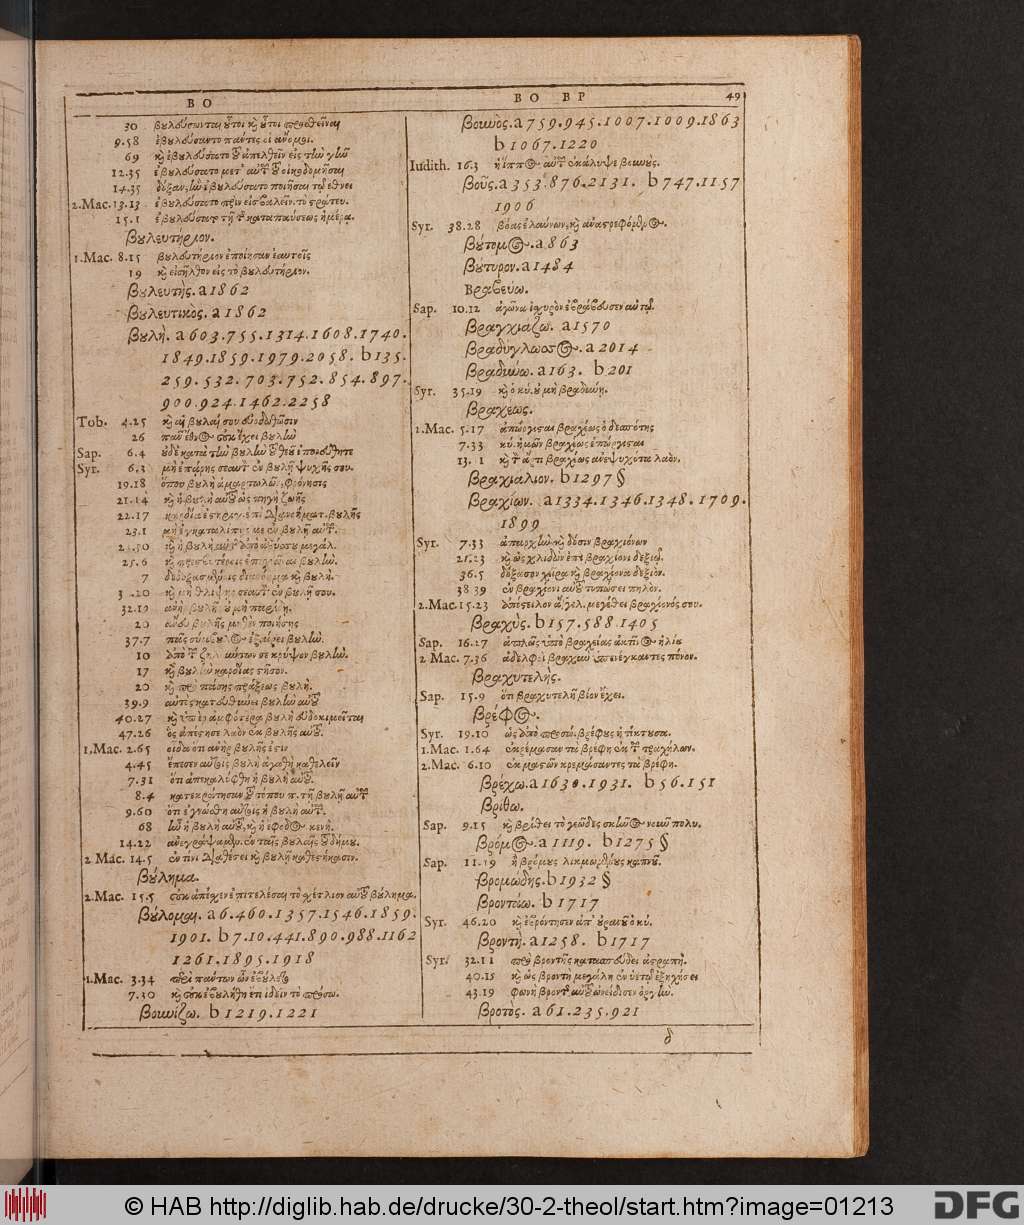 BO
BO BP 49
30 βουλεύσωνται οὗτοι καὶ οὗτοι προσθεῖναι
9.58 ἐβουλεύσαντο πάντες οἱ ἄνομοι.
69 καὶ ἐβουλεύσατο τοῦ ἀπελθεῖν εἰς τὴν γῆν
12.35 ἐβουλεύσατο μετ' αὐτῶν τοῦ οἰκοδομῆσαι
14.35 δόξαν, ἣν ἐβουλεύσατο ποιῆσαι τῷ ἔθνει
2.Mac. 13.13 ἐβουλεύσατο πρὶν εἰσβαλεῖν. τὸ στράτευ.
15.1 ἐβουλεύσατο τῇ τῆς καταπαύσεως ἡμέρᾳ.
βουλευτήριον.
1.Mac. 8.15 βουλευτήριον ἐποίησαν ἑαυτοῖς
19 καὶ εἰσῆλθον εἰς τὸ βουλευτήριον.
βουλευτής. a 1862
βουλευτικὸς. a 1862
βουλὴ. a 603.755.1314.1608.1740.
1849.1859.1979.2058. b 135.
259.532.703.752.854.897.
900.924.1462.2258
Tob. 4.25 καὶ αἱ βουλαί σου εὐοδωθῶσιν
26 πᾶν ἔθνος οὐκ ἔχει βουλὴν
Sap. 6.4 οὐδὲ κατὰ τὴν βουλὴν τοῦ θεοῦ ἐπορεύθητε
Syr. 6.3 μὴ ἐπάρῃς σεαυτὸν ἐν βουλῇ ψυχῆς σου.
19.18 ὅπου βουλὴ ἁμαρτωλῶν, φρόνησις
21.14 καὶ ἡ βουλὴ αὐτοῦ ὡς πηγὴ ζωῆς
22.17 καρδία ἑδρ. ἐπὶ διανοήματ. βουλῆς
23.1 μὴ ἐγκαταλίπῃς με ἐν βουλῇ αὐτῶν.
καὶ ἡ βουλὴ αὐτ. ἀπὸ ἀβύσσου μεγάλ.
25.6 καὶ πρεσβυτέροις ἐπιγνῶναι βουλήν.
7 δεδοξασμένοις διανόημα καὶ βουλή.
20 καὶ μὴ θλίψῃς σεαυτὸν ἐν βουλῇ σου.
32.19 ἀνὴρ βουλῆς οὐ μὴ παρίδῃ.
20 ἄνευ βουλῆς μηθὲν ποιήσῃς
37.7 πᾶς σύμβουλος ἐξαίρει βουλὴν.
10 ἀπὸ τῶν ζηλούντων σε κρύψον βουλήν.
17 καὶ βουλὴν καρδίας στῆσον.
20 καὶ πρὸ πάσης πράξεως βουλή.
39.9 αὐτὸς κατευθυνεῖ βουλὴν αὐτοῦ
40.27 καὶ ὑπὲρ ἀμφότερα βουλὴ εὐδοκιμεῖται
47.26 ὃς ἀπέστησε λαὸν ἐκ βουλῆς αὐτοῦ.
1.Mac. 2.65 οἶδα ὅτι ἀνὴρ βουλῆς ἐστιν
4.45 ἔπεσεν αὐτοῖς βουλὴ ἀγαθὴ καθελεῖν
7.31 ὅτι ἀπεκαλύφθη ἡ βουλὴ αὐτοῦ.
8.4 κατεκράτησαν τοῦ τόπου π. τῇ βουλῇ αὐτῶν
9.60 ὅτι ἐγνώσθη αὐτοῖς ἡ βουλὴ αὐτῶν.
68 ἦν ἡ βουλὴ αὐτοῦ, καὶ ἡ ἔφοδος κενή.
14.22 ἀνεγράψαμεν. ἐν ταῖς βουλαῖς τοῦ δήμου.
2 Mac. 14.5 ἐν τίνι διαθέσει καὶ βουλῇ καθεστήκασιν.
βούλημα.
2.Mac. 15.5 οὐκ ἀπέσχεν ἐπιτελέσαι τὸ σχέτλιον αὐτοῦ βούλημα.
βούλομαι. a 6.460.1357.1546.1859.
1901. b 7.10.441.890.988.1162
1261.1895.1918
1.Mac. 3.34 περὶ πάντων ὧν ἐβούλετο
7.30 καὶ οὐκ ἐβουλήθη ἔτι ἰδεῖν τὸ πρόσω.
βουνίζω. b 1219.1221
βουνὸς. a 759.945.1007.1009.1863
b 1067.1220
Iudith. 16.3 ἡ ἵππος αὐτῶν ἐκάλυψε βουνούς.
βοῦς. a 353.876.2131. b 747.1157
1906
Syr. 38.28 βόας ἐλαύνων, καὶ ἀναστρεφόμενος.
βούτομος. a 863
βούτυρον. a 1484
Βραβεύω.
Sap. 10.12 ἀγῶνα ἰσχυρὸν ἐβράβευσεν αὐτῷ.
βραγχιάζω. a 1570
βραδύγλωσσος. a 2014
βραδύνω. a 163. b 201
Syr. 35.19 καὶ ὁ κύ. οὐ μὴ βραδύνῃ.
βραχέως.
1.Mac. 5.17 ἐπώργισται βραχέως ὁ δεσπότης
7.33 κύ. ἡμῶν βραχέως ἐπώργισται
13. 1 καὶ τὸν ἄρτι βραχέως ἀνεψυχότα λαόν.
βραχιάλιον. b 1297 §
βραχίων. a 1334.1346.1348.1709.
1899
Syr. 7.33 ἀπαρχὴν καὶ δόσιν βραχιόνων
21.23 καὶ ὡς χλιδὼν ἐπὶ βραχίονι δεξιῷ.
36.5 δόξασον χεῖρα καὶ βραχίονα δεξιόν.
38 39 ἐν βραχίονι αὐτοῦ τυπώσει πηλόν.
2.Mac. 15.23 ἀπόστειλον ἄγγελ. μεγέθει βραχίονός σου.
βραχὺς. b 157.588.1405
Sap. 16.27 ἁπλῶς ὑπὸ βραχείας ἀκτῖνος ἡλίου
2 Mac. 7.36 ἀδελφοὶ βραχὺν ὑπενέγκαντες πόνον.
βραχυτελής.
Sap. 15.9 ὅτι βραχυτελῆ βίον ἔχει.
βρέφος.
Syr. 19.10 ὡς ἀπὸ προσώ. βρέφους ἡ τίκτουσα.
1.Mac. 1.64 ἐκρέμασαν τὰ βρέφη ἐκ τῶν τραχήλων.
2.Mac. 6.10 ἐκ μαστῶν κρεμάσαντες τὰ βρέφη.
βρέχω. a 1630.1931. b 56.151
βρίθω.
Sap. 9.15 καὶ βρίθει τὸ γεῶδες σκῆνος νοῦν πολυ.
βρόμος. a 1119. b 1275 §
Sap. 11.19 ἢ βρόμους λικμωμένους καπνοῦ.
βρομώδης. b 1932 §
βροντάω. b 1717
Syr. 46.20 καὶ ἐβρόντησεν ἀπ' οὐρανοῦ ὁ κύ.
βροντὴ. a 1258. b 1717
Syr. 32.11 πρὸ βροντῆς κατασπεύδει ἀστραπή.
40.15 καὶ ὡς βροντὴ μεγάλη ἐν ὑετῷ ἐξηχήσει
43.19 φωνὴ βροντῆς αὐτοῦ ὠνείδισεν ὀργὴν.
βροτὸς. a 61.235.921
δ
© HAB http://diglib.hab.de/drucke/30-2-theol/start.htm?image=01213
DFG